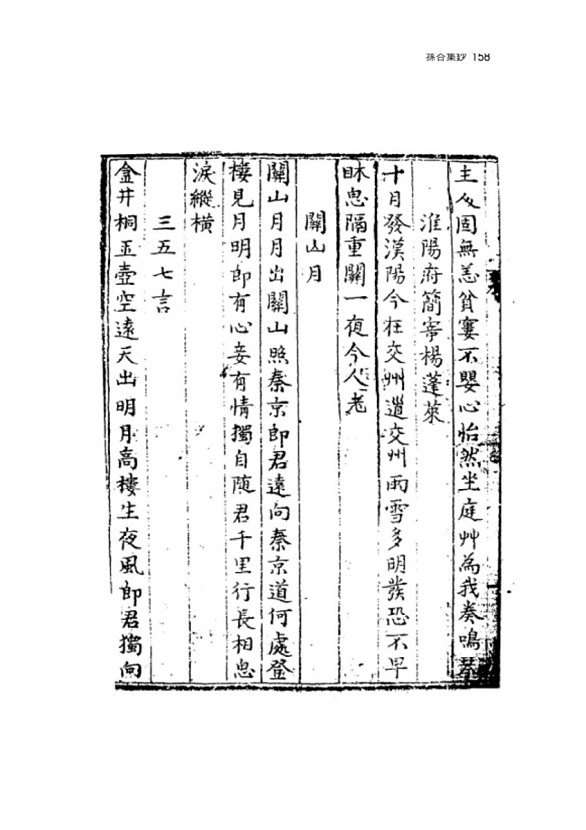 孫谷集鈔 158
主人固無恙貧窶不嬰心怡然坐庭艸為我奏鳴琴
淮陽府簡寄楊蓬萊
十月發漢陽今在交州道交州雨雪多明發恐不早
眠思隔重關一夜今人老
關山月
關山月月出關山照秦京郎君遠向秦京道何處登
樓見月明郎有心妾有情獨自随君千里行長相思
淚縱橫
三五七言
金井桐玉壺空遠天出明月高樓生夜風郎君獨向